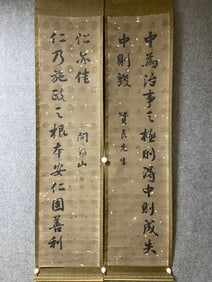 中為治事之極則得中則成失
中則毀
賢良先生
仁乃施政之根本安仁固善利
仁亦佳
閻錫山